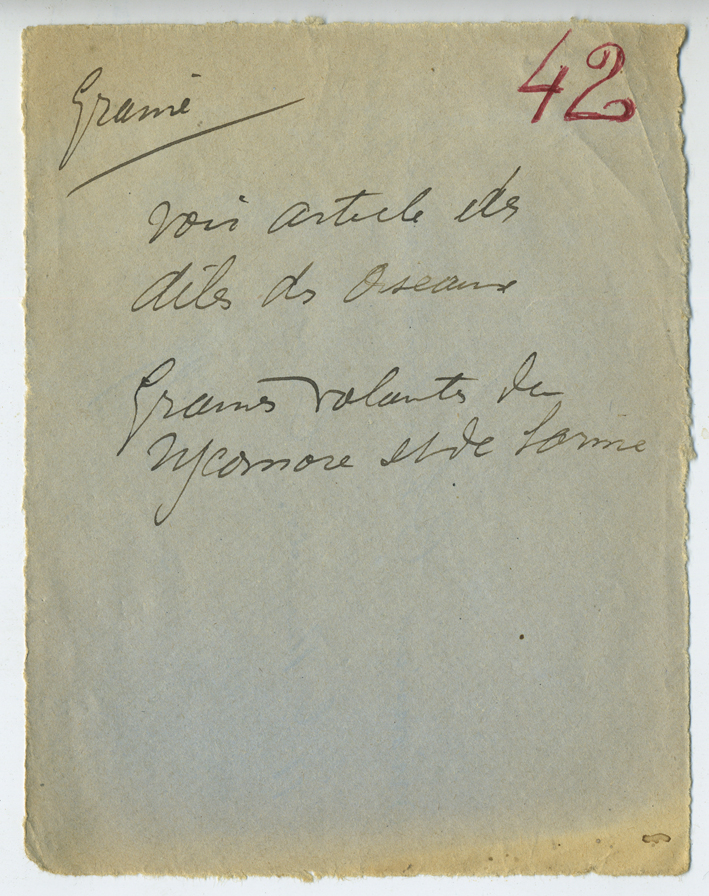 42
Graine
voir article des
ailes des oiseaux
Graines volantes du
sycomore et de l'orme